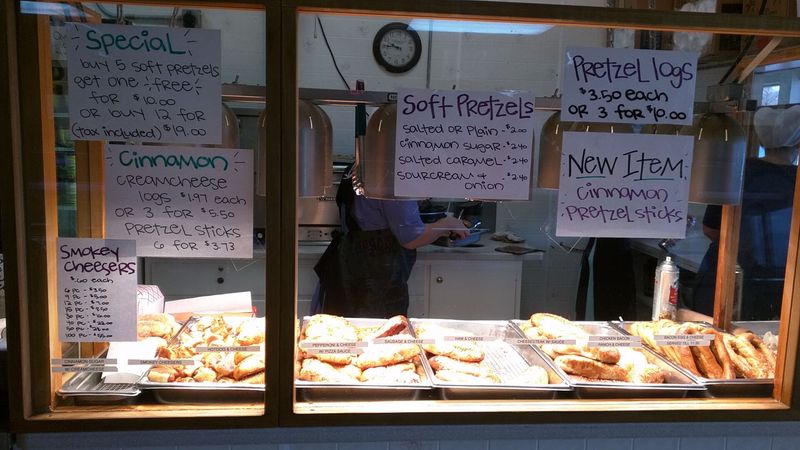 Special
buy 5 soft pretzels
get one free
for $10.00
or buy 12 for
(tax included) $19.00
Cinnamon
creamcheese
logs $1.97 each
or 3 for $5.50
pretzel sticks
6 for $3.73
Smokey
Cheesers
$.60 each
Soft Pretzels
salted or plain - $2.00
cinnamon sugar - $2.40
salted caramel - $2.40
sourcream &
onion - $2.40
Pretzel logs
$3.50 each
or 3 for $10.00
New Item
cinnamon
pretzel sticks
CINNAMON SUGAR
W/ CREAMCHEESE
SMOKEY CHEESERS
HOTDOG & CHEESE
PEPPERONI & CHEESE
W/ PIZZA SAUCE
SAUSAGE & CHEESE
HAM & CHEESE
CHEESESTEAK W/ SAUCE
CHICKEN BACON
RANCH & CHEESE
BACON EGG & CHEESE